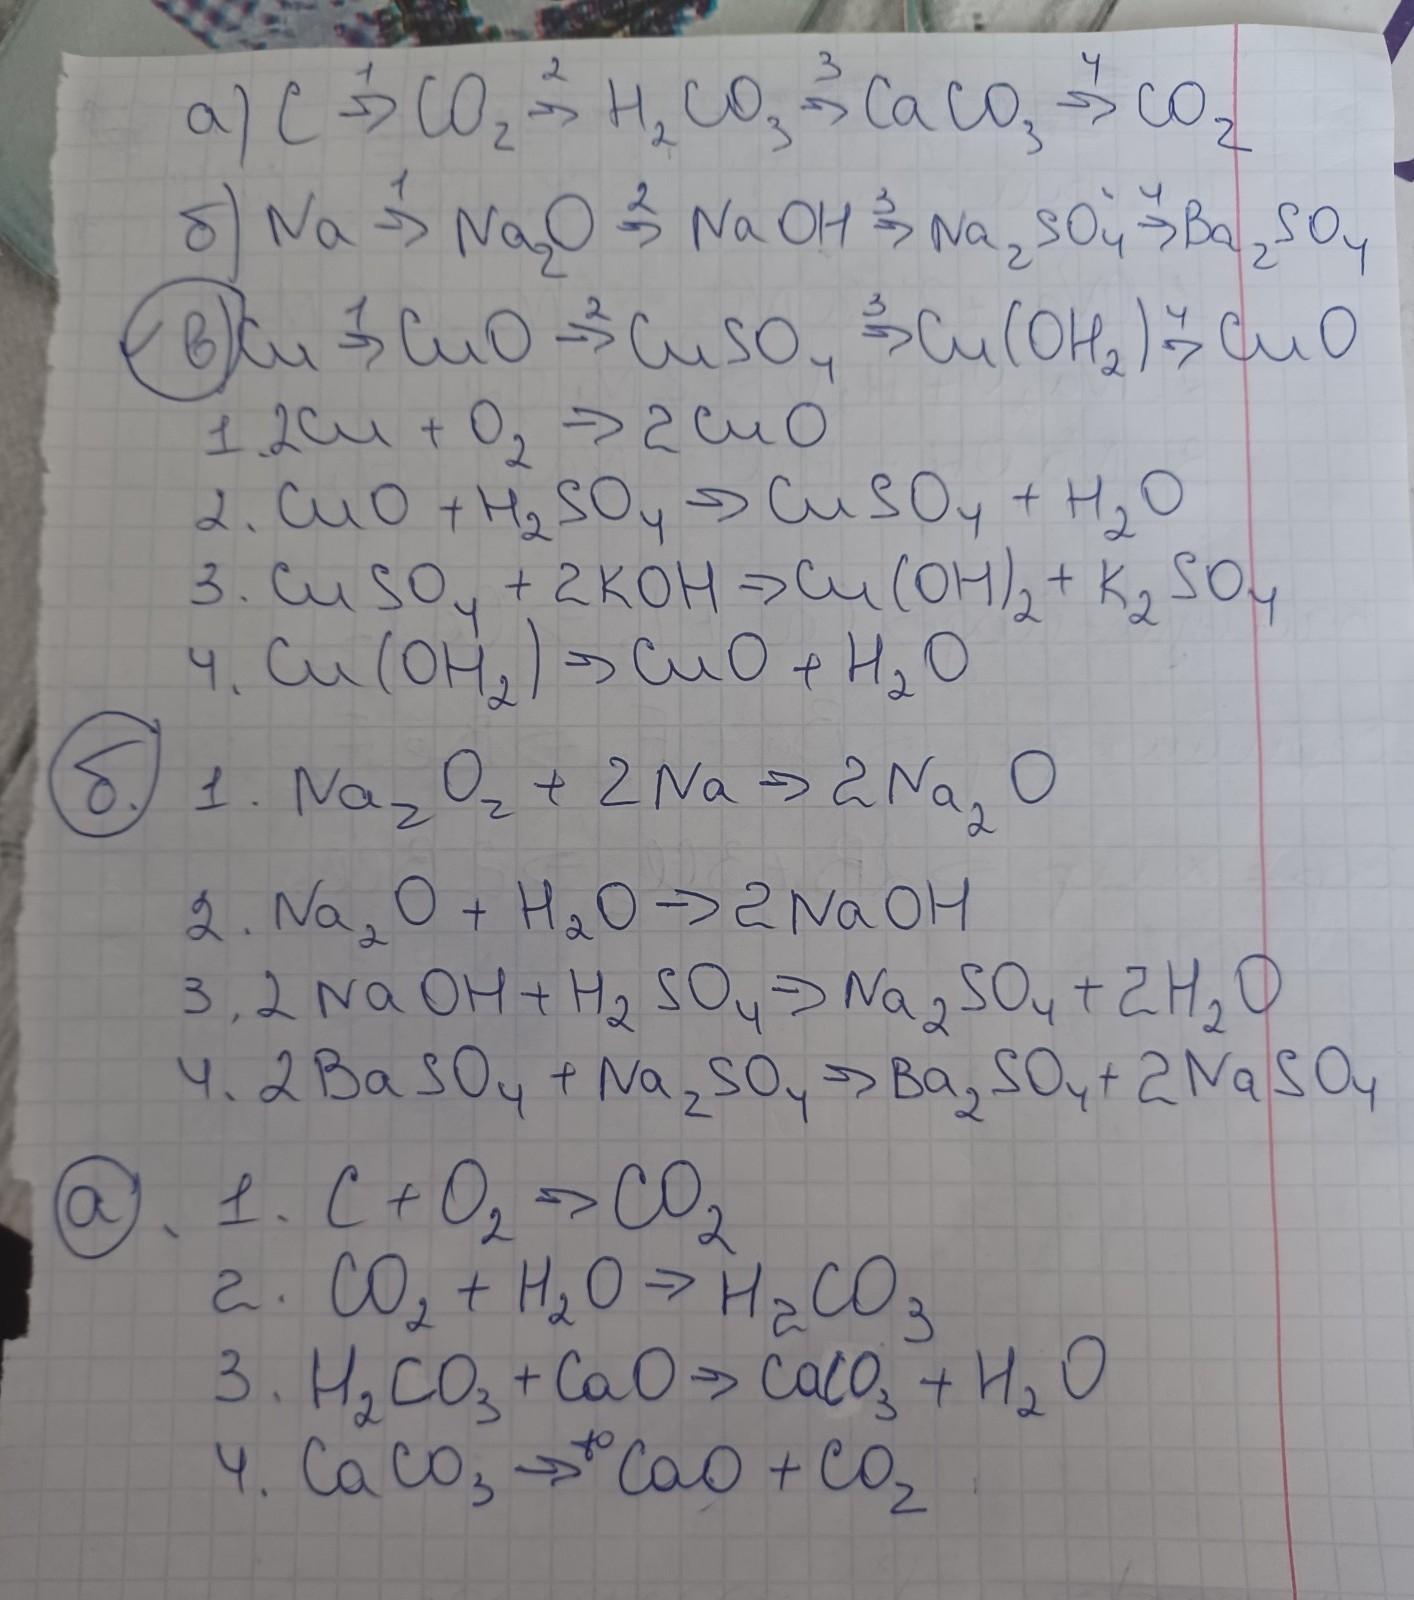 а) C →¹ CO₂ →² H₂CO₃ →³ CaCO₃ →⁴ CO₂
б) Na →¹ Na₂O →² NaOH →³ Na₂SO₄ →⁴ Ba₂SO₄
в) Cu →¹ CuO →² CuSO₄ →³ Cu(OH₂) →⁴ CuO
1. 2Cu + O₂ → 2CuO
2. CuO + H₂SO₄ → CuSO₄ + H₂O
3. CuSO₄ + 2KOH → Cu(OH)₂ + K₂SO₄
4. Cu(OH₂) → CuO + H₂O
б. 1. Na₂O₂ + 2Na → 2Na₂O
2. Na₂O + H₂O → 2NaOH
3. 2NaOH + H₂SO₄ → Na₂SO₄ + 2H₂O
4. 2BaSO₄ + Na₂SO₄ → Ba₂SO₄ + 2NaSO₄
а. 1. C + O₂ → CO₂
2. CO₂ + H₂O → H₂CO₃
3. H₂CO₃ + CaO → CaCO₃ + H₂O
4. CaCO₃ →t° CaO + CO₂